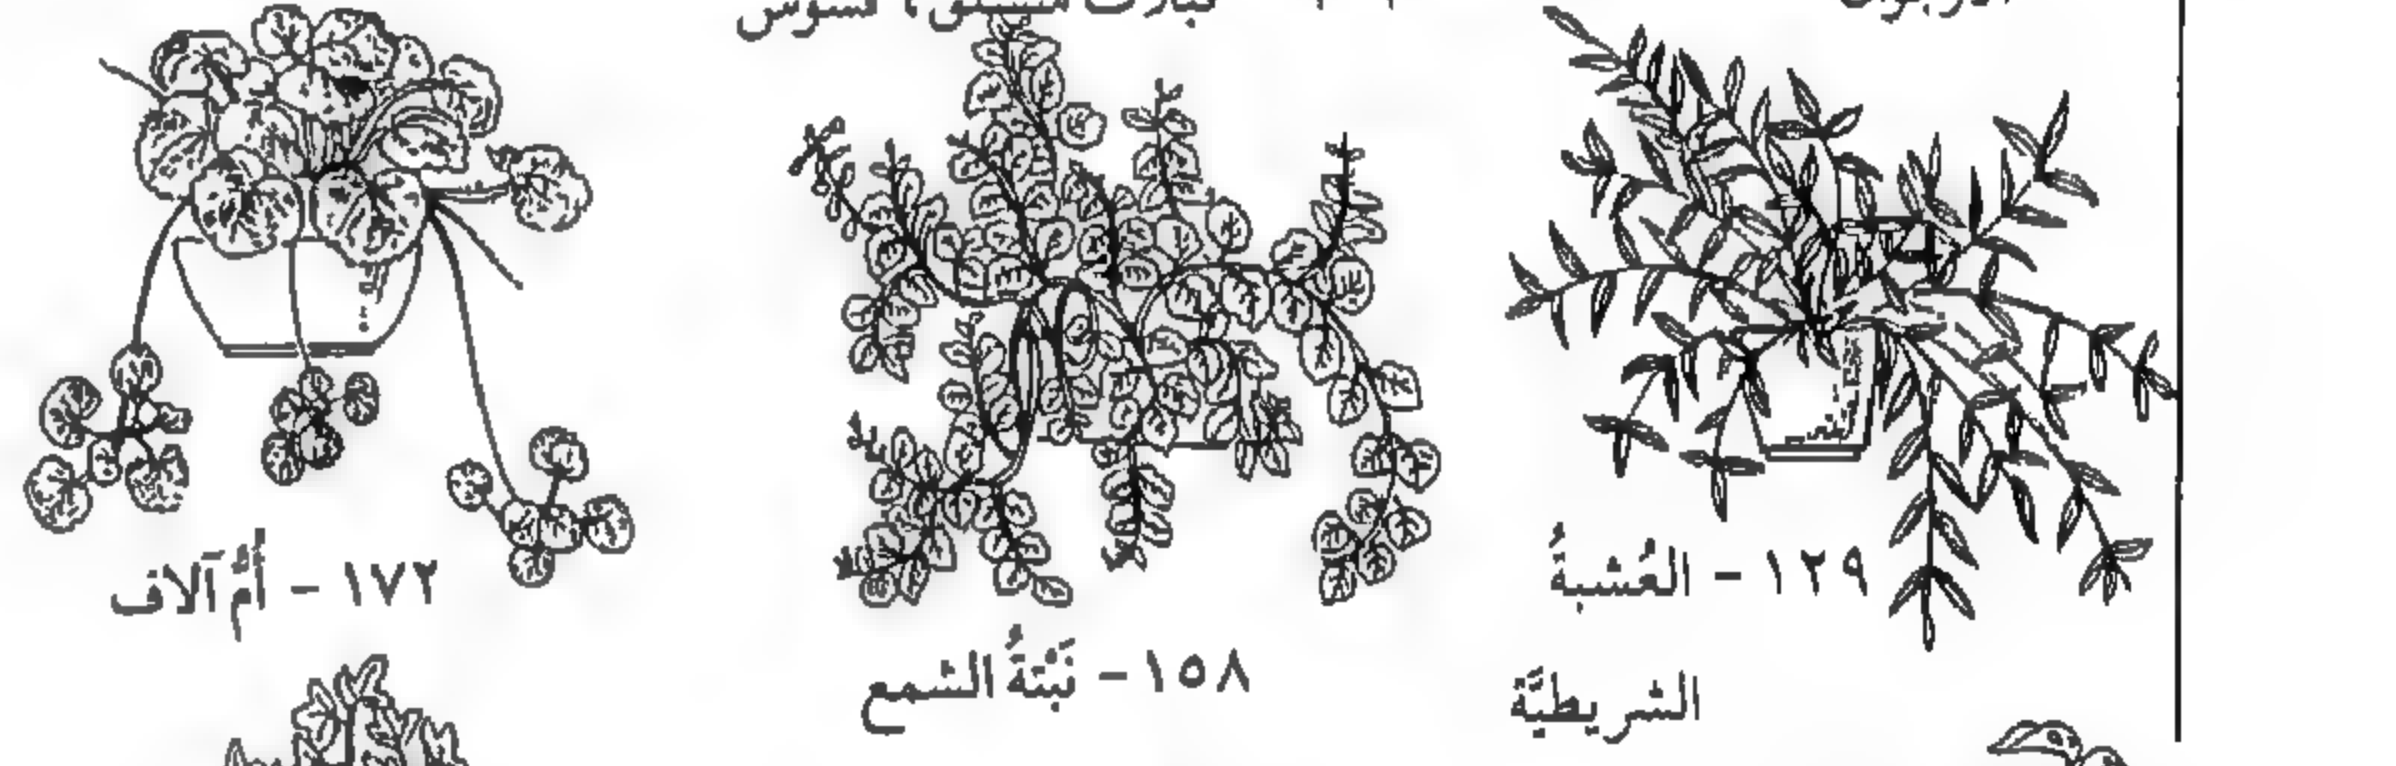 ١٢٩ - العُشبةُ
الشريطيَّة
١٥٨ - نَبْتَةُ الشمع
١٧٢ - أُمُّ آلاف